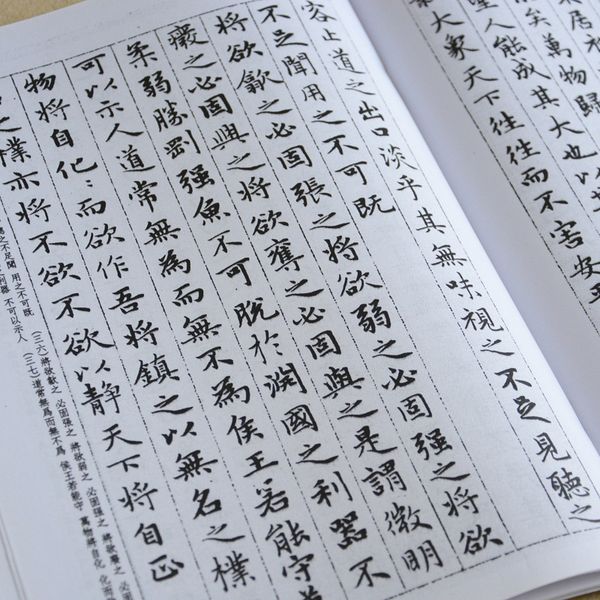 居
矣萬物歸
聖人能成其大也以
大象天下往往而不害安平
客止道之出口淡乎其無味視之不足見聽之
不足聞用之不可既
將欲歙之必固張之將欲弱之必固強之將欲
癈之必固興之將欲奪之必固與之是謂微明
柔弱勝剛強魚不可脫於淵國之利器不
可以示人道常無為而無不為侯王若能守
物將自化〻而欲作吾將鎮之以無名之樸
之樸亦將不欲不欲以靜天下將自正
聽之不足聞 用之不可既 (三六)將欲歙之 必固張之 將欲弱之 必固強之 將欲廢之 必固
利器 不可以示人 (三七)道常無為而無不為 侯王若能守 萬物將自化 化而欲